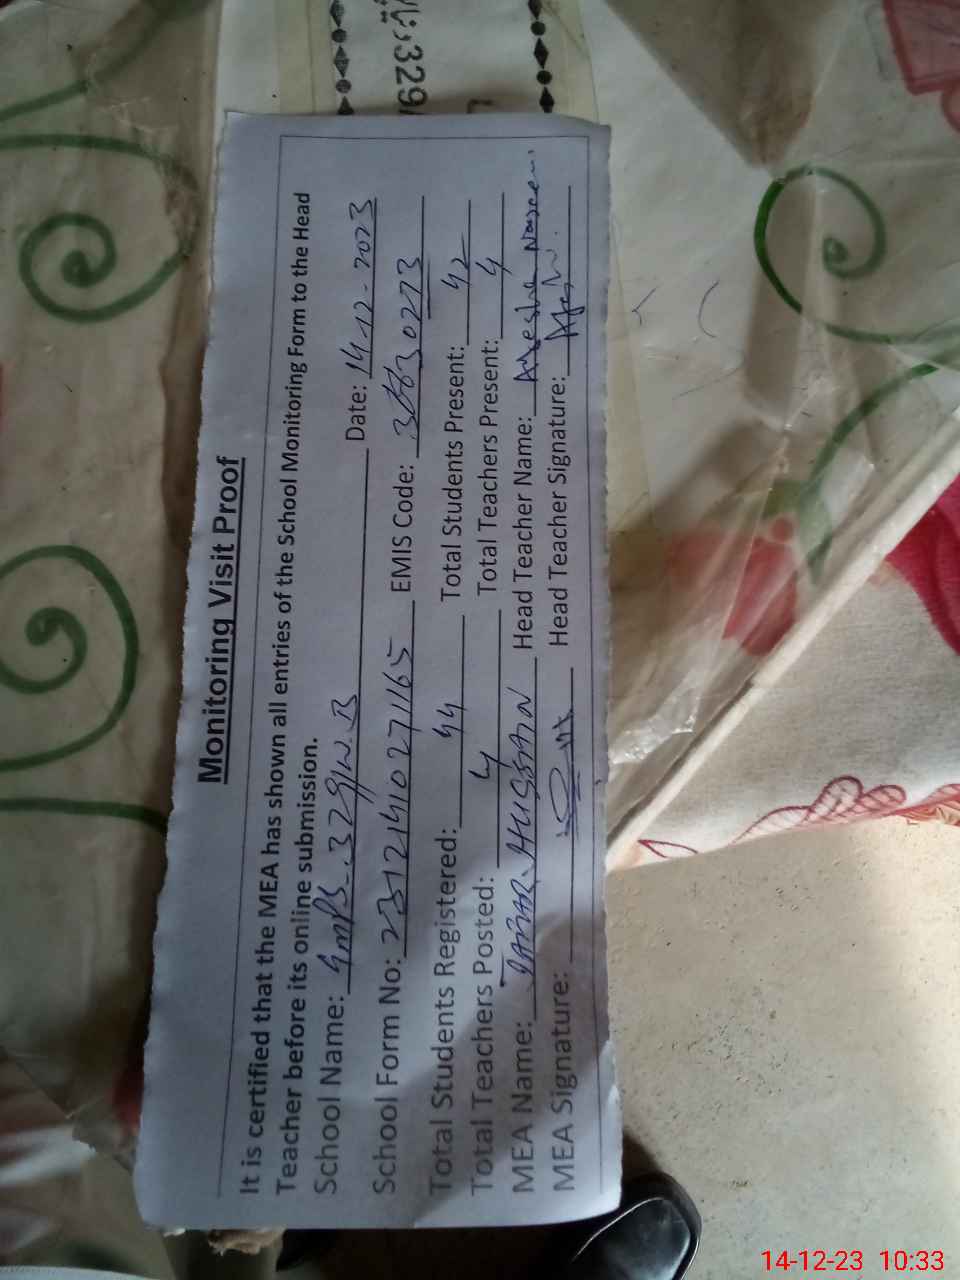 329
Monitoring Visit Proof
It is certified that the MEA has shown all entries of the School Monitoring Form to the Head
Teacher before its online submission.
School Name: GMPS-329/W.B Date: 14-12-2023
School Form No: 23121410271165 EMIS Code: 36630273
Total Students Registered: 44 Total Students Present: 42
Total Teachers Posted: 4 Total Teachers Present: 4
MEA Name: JAFFAR HUSSAIN Head Teacher Name: Ayesha Naseem
MEA Signature: Head Teacher Signature:
14-12-23 10:33